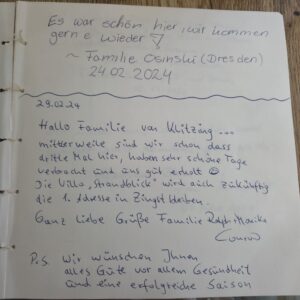 Es war schön hier, wir kommen
gerne wieder!
~ Familie Osinski (Dresden)
24.02.2024
29.02.24
Hallo Familie von Klitzing...
mittlerweile sind wir schon dass
dritte Mal hier, haben sehr schöne Tage
verbracht und uns gut erholt ☺
Die Villa „Strandblick" wird auch zukünftig
die 1. Adresse in Zingst bleiben.
Ganz liebe Grüße Familie Ralph Mareike
P.S. Wir wünschen Ihnen
alles Gute vor allem Gesundheit
und eine erfolgreiche Saison